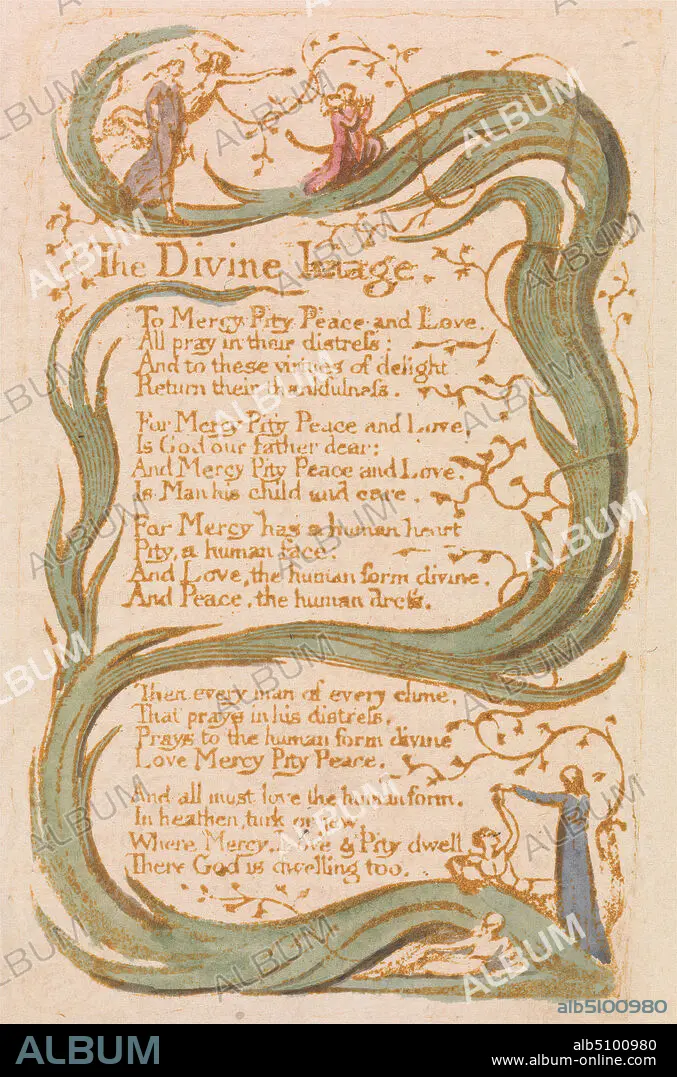 The Divine Image.
To Mercy Pity Peace and Love,
All pray in their distreſs:
And to these virtues of delight
Return their thankfulneſs.
For Mercy Pity Peace and Love,
Is God our father dear:
And Mercy Pity Peace and Love,
Is Man his child and care.
For Mercy has a human heart
Pity, a human face:
And Love, the human form divine,
And Peace, the human dreſs.
Then every man of every clime,
That prays in his distreſs,
Prays to the human form divine
Love Mercy Pity Peace.
And all must love the human form,
In heathen, turk or jew.
Where Mercy, Love & Pity dwell
There God is dwelling too.
alb5100980
ALBUM
alb5100980
www.album-online.com